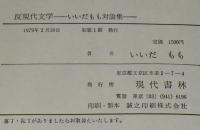 反現代文学――いいだもも対論集――
1979年2月20日　初版1刷　発行
定価　1500円
著者　いいだ　もも
東京都文京区水道2-7-4
発行所　現代書林
電話　東京（03）（941）6196
印刷・製本　誠之印刷株式会社
落丁・乱丁がありましたらお取替えいたします。